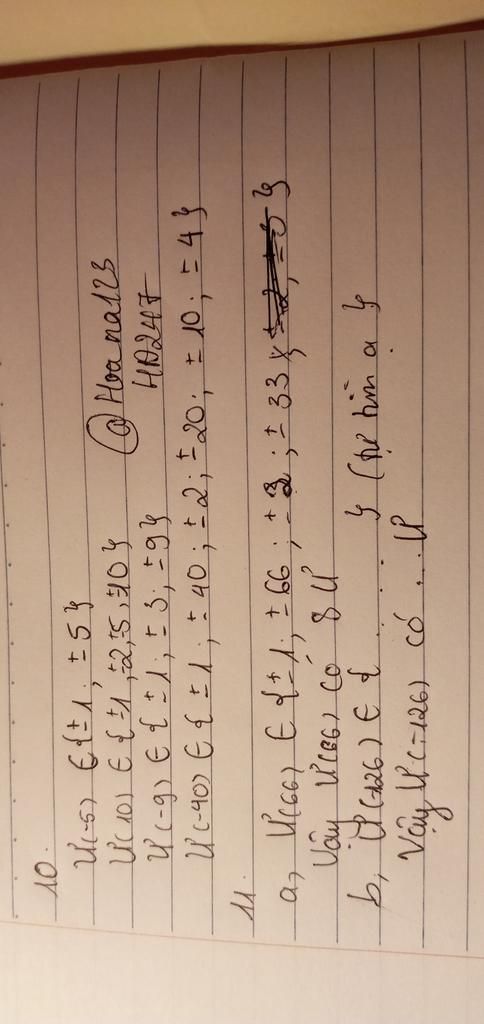 10.
Ư(-5) ∈ {±1; ±5}
Ư(10) ∈ {±1, ±2, ±5, ±10} @Hoa na123
Ư(-9) ∈ {±1; ±3; ±9} HD247
Ư(-40) ∈ {±1; ±40; ±2; ±20; ±10; ±4}
11.
a, Ư(66) ∈ {±1; ±66; ; ±33; }
Vậy Ư(66) có 8 Ư
b, Ư(-126) ∈ { . . . } (tự tìm ạ)
Vậy Ư(-126) có ... Ư